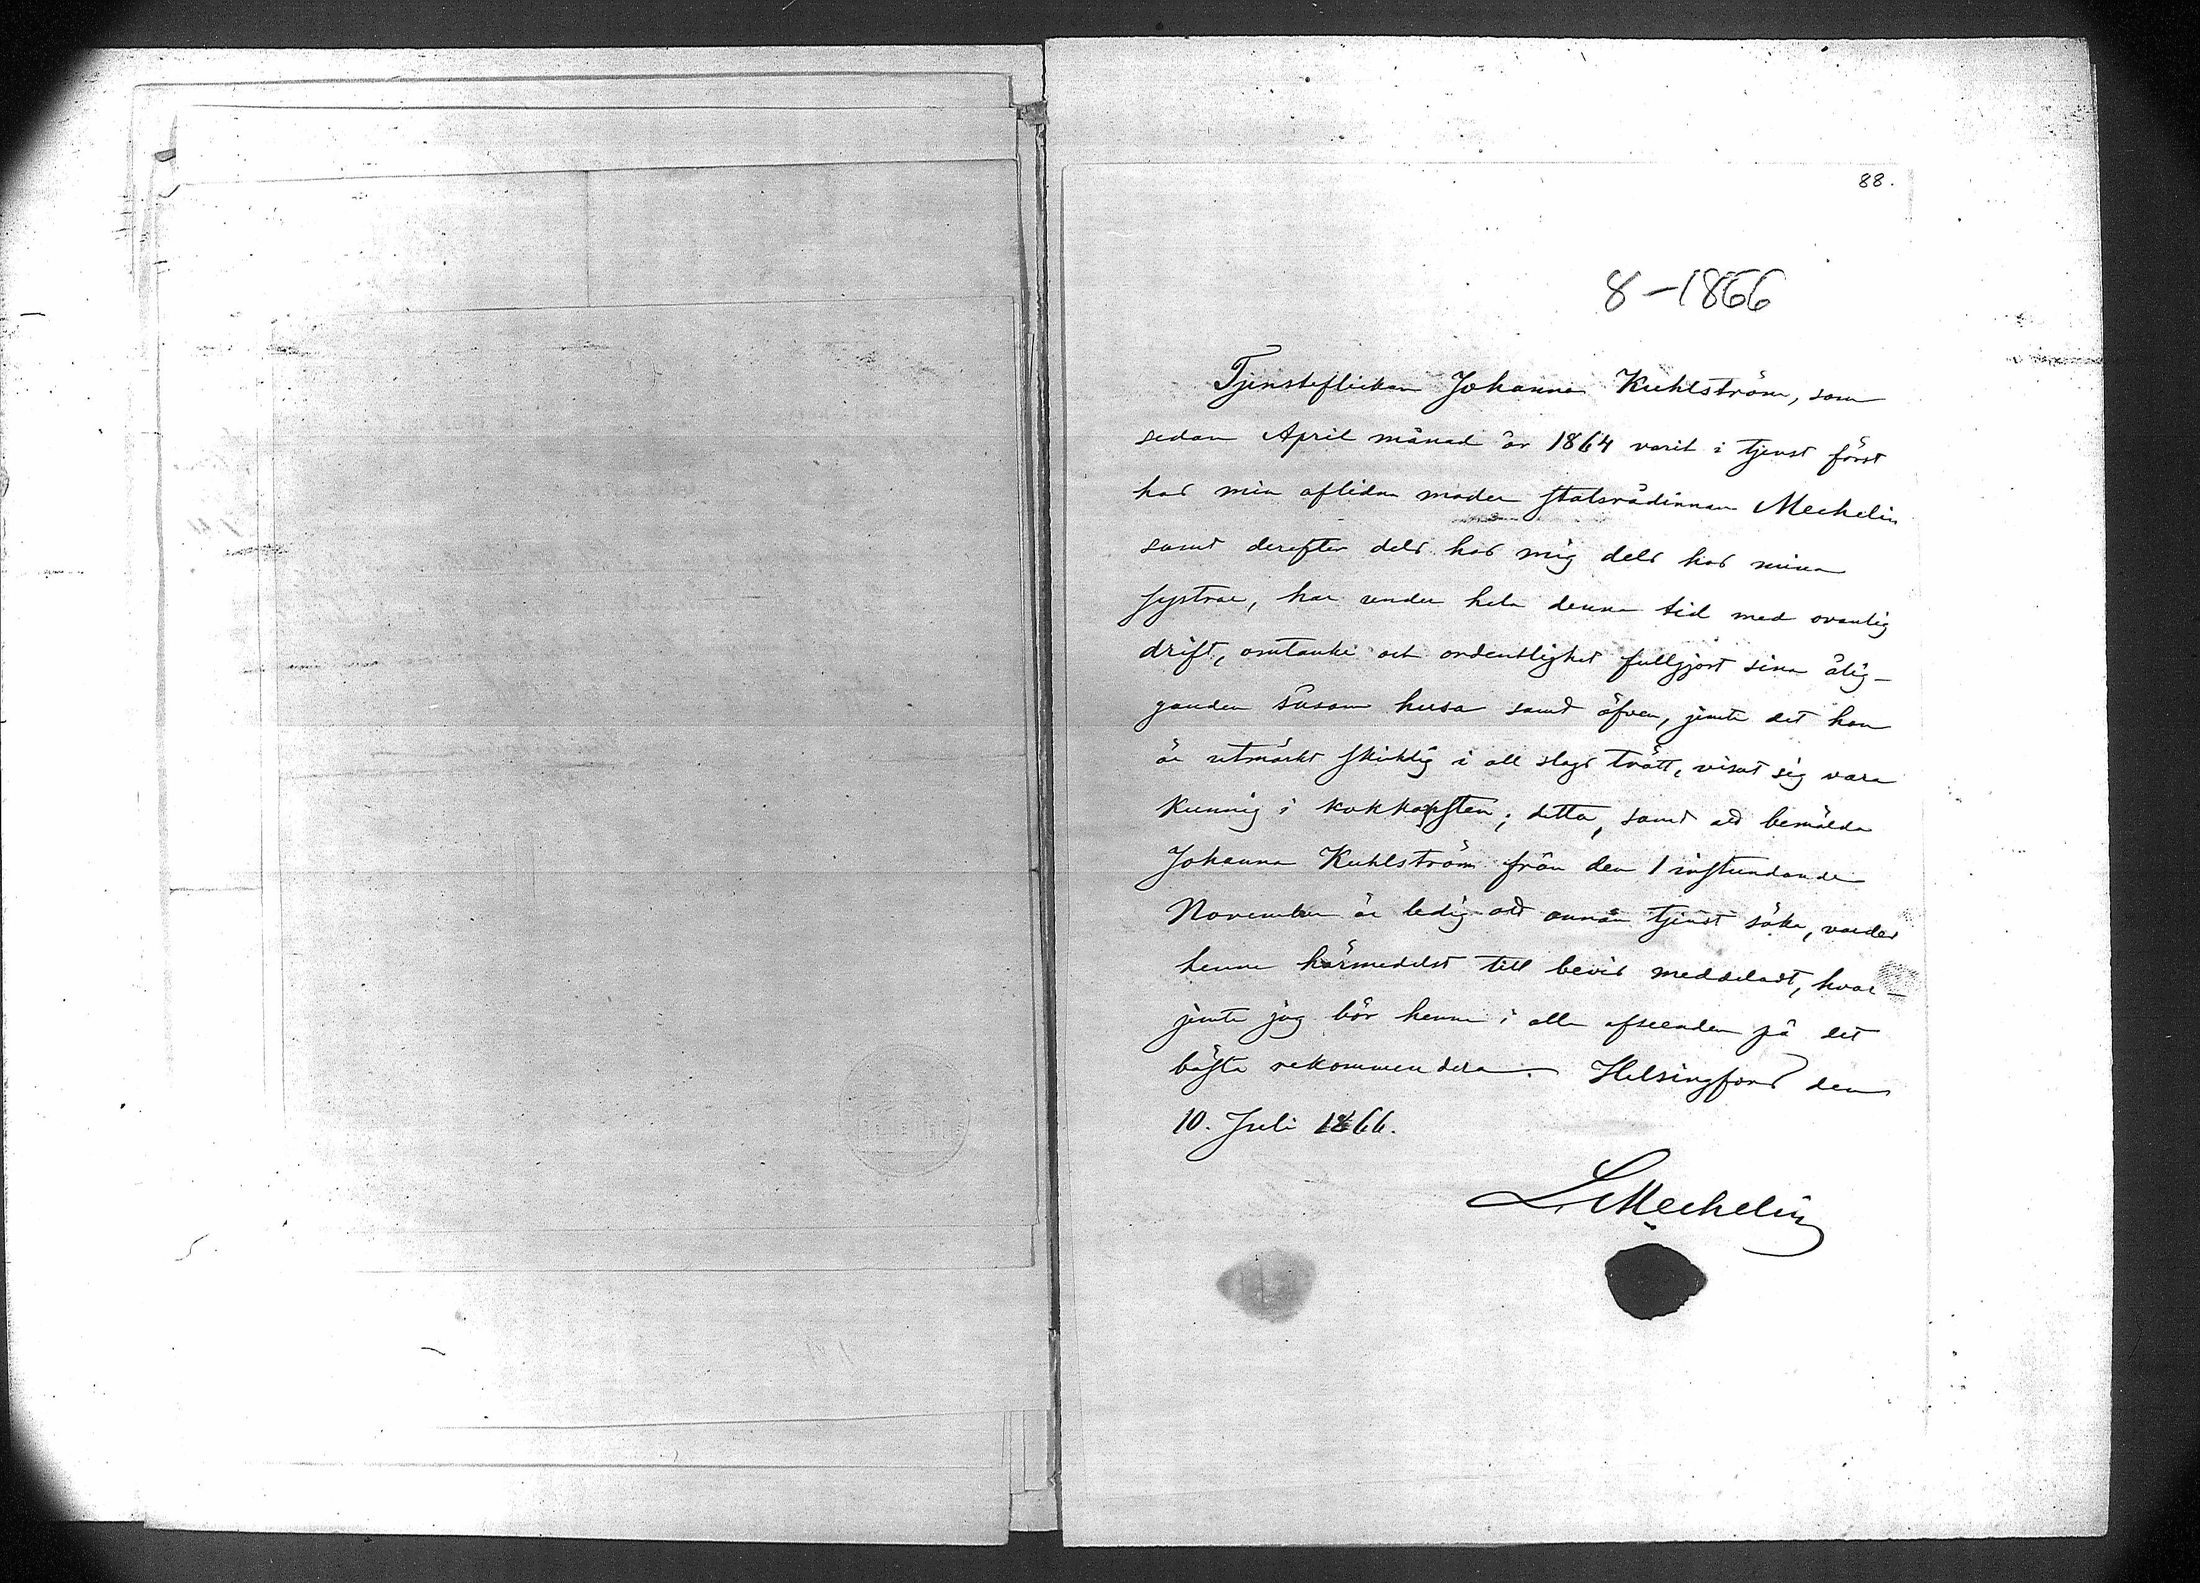 88.
8-1866
Tjensteflickan Johanna Kuhlström, som
sedan April månad år 1864 varit i tjenst först
hos min aflidna moder statsrådinnan Mechelin
samt derefter dels hos mig dels hos mina
systrar, har under hela denna tid med ovanlig
drift, omtanke och ordentlighet fullgjort sina ålig-
ganden såsom husa samt äfven, jemte det hon
är utmärkt skicklig i all slags tvätt, visat sig vara
kunnig i kokkonsten; detta, samt att bemälda
Johanna Kuhlström från den 1 instundande
November är ledig att annan tjenst söka, varder
henne härmedelst till bevis meddeladt, hvar-
jemte jag bör henne i alla afseenden på det
bästa rekommendera. Helsingfors den
10. Juli 1866.
L Mechelin